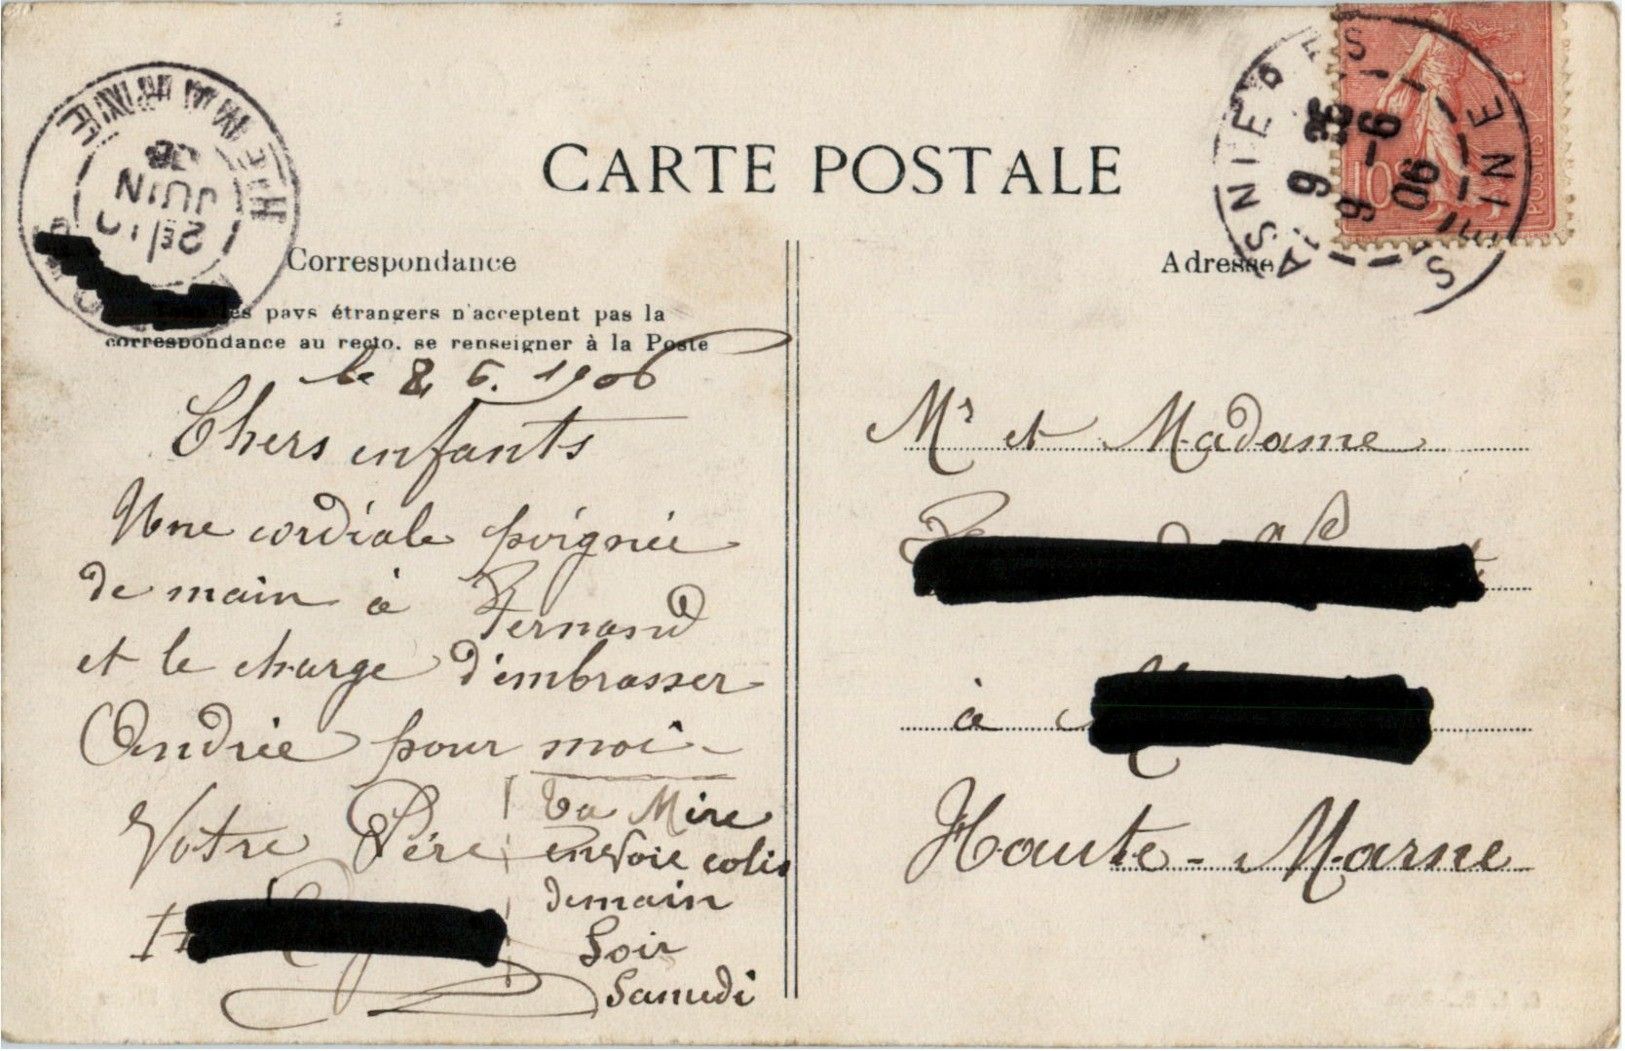 CARTE POSTALE
Correspondance
pays étrangers n'acceptent pas la
correspondance au recto, se renseigner à la Poste
le 8 6. 1906
Chers enfants
Une cordiale poignée
de main à Fernand
et le charge d'embrasser
Andrée pour moi
Votre Père
Ta Mère
envoie colis
demain
Soir
Samedi
Adresse
Mr et Madame
à
Haute-Marne
ASNIERES
9-6
06
SEINE
HTE MARNE
JUIN
06
10
POSTES